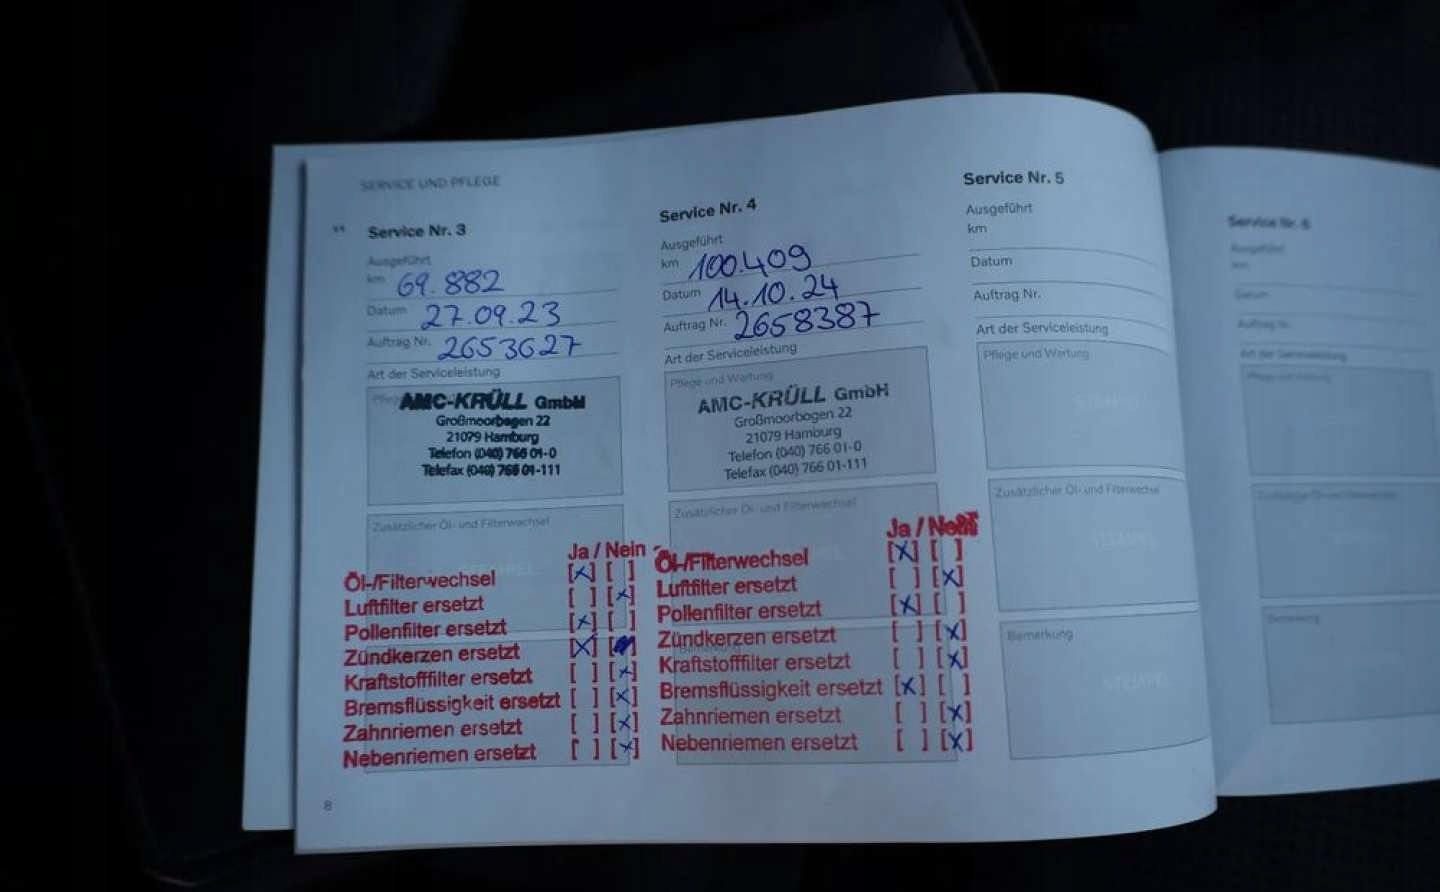 SERVICE UND PFLEGE
Service Nr. 3
Ausgeführt
km 69.882
Datum 27.09.23
Auftrag Nr. 2653627
Art der Serviceleistung
AMC-KRÜLL GmbH
Großmoorbogen 22
21079 Hamburg
Telefon (040) 766 01-0
Telefax (040) 766 01-111
Zusätzlicher Öl- und Filterwechsel
STEMPEL
Ja / Nein
Öl-/Filterwechsel [x] [ ]
Luftfilter ersetzt [ ] [x]
Pollenfilter ersetzt [x] [ ]
Zündkerzen ersetzt [x] [ ]
Kraftstofffilter ersetzt [ ] [x]
Bremsflüssigkeit ersetzt [ ] [x]
Zahnriemen ersetzt [ ] [x]
Nebenriemen ersetzt [ ] [x]
8
Service Nr. 4
Ausgeführt
km 100.409
Datum 14.10.24
Auftrag Nr. 2658387
Art der Serviceleistung
Pflege und Wartung
AMC-KRÜLL GmbH
Großmoorbogen 22
21079 Hamburg
Telefon (040) 766 01-0
Telefax (040) 766 01-111
Zusätzlicher Öl- und Filterwechsel
Ja / Nein
Öl-/Filterwechsel [x] [ ]
Luftfilter ersetzt [ ] [x]
Pollenfilter ersetzt [x] [ ]
Zündkerzen ersetzt [ ] [x]
Kraftstofffilter ersetzt [ ] [x]
Bremsflüssigkeit ersetzt [x] [ ]
Zahnriemen ersetzt [ ] [x]
Nebenriemen ersetzt [ ] [x]
Service Nr. 5
Ausgeführt
km
Datum
Auftrag Nr.
Art der Serviceleistung
Pflege und Wartung
STEMPEL
Zusätzlicher Öl- und Filterwechsel
STEMPEL
Bemerkung
STEMPEL
Service Nr. 6
Ausgeführt
km
Datum
Auftrag Nr.
Art der Serviceleistung
Pflege und Wartung
Zusätzlicher Öl- und Filterwechsel
Bemerkung